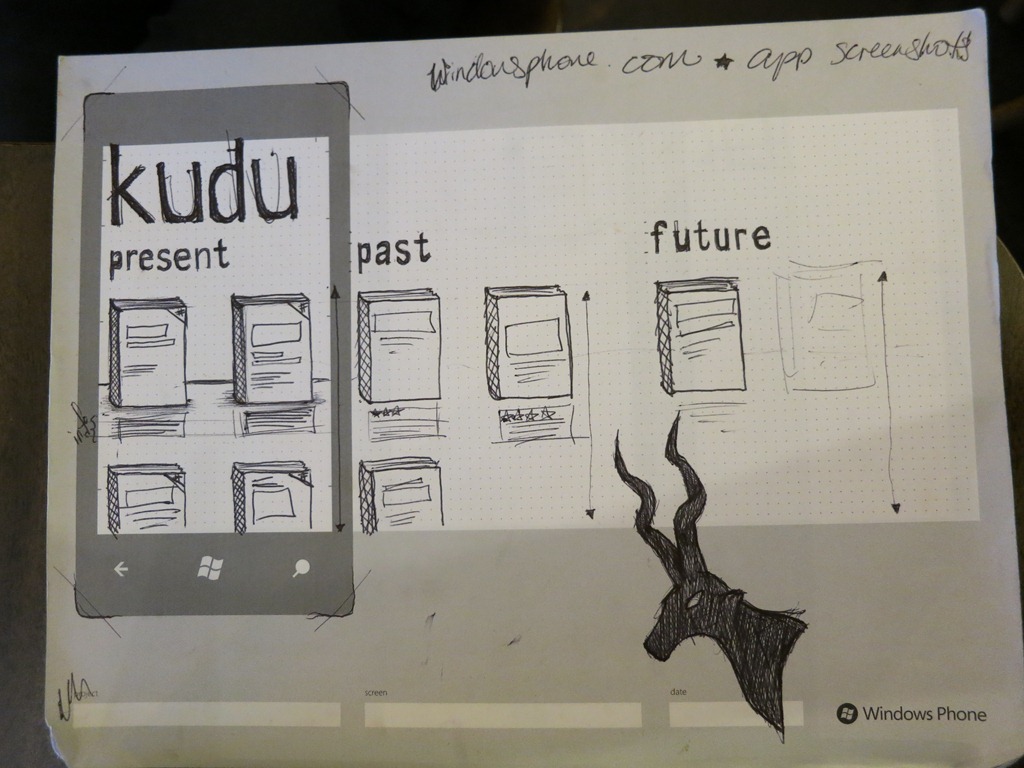 windowsphone.com ★ app screenshots
kudu
present
past
future
screen
date
Windows Phone